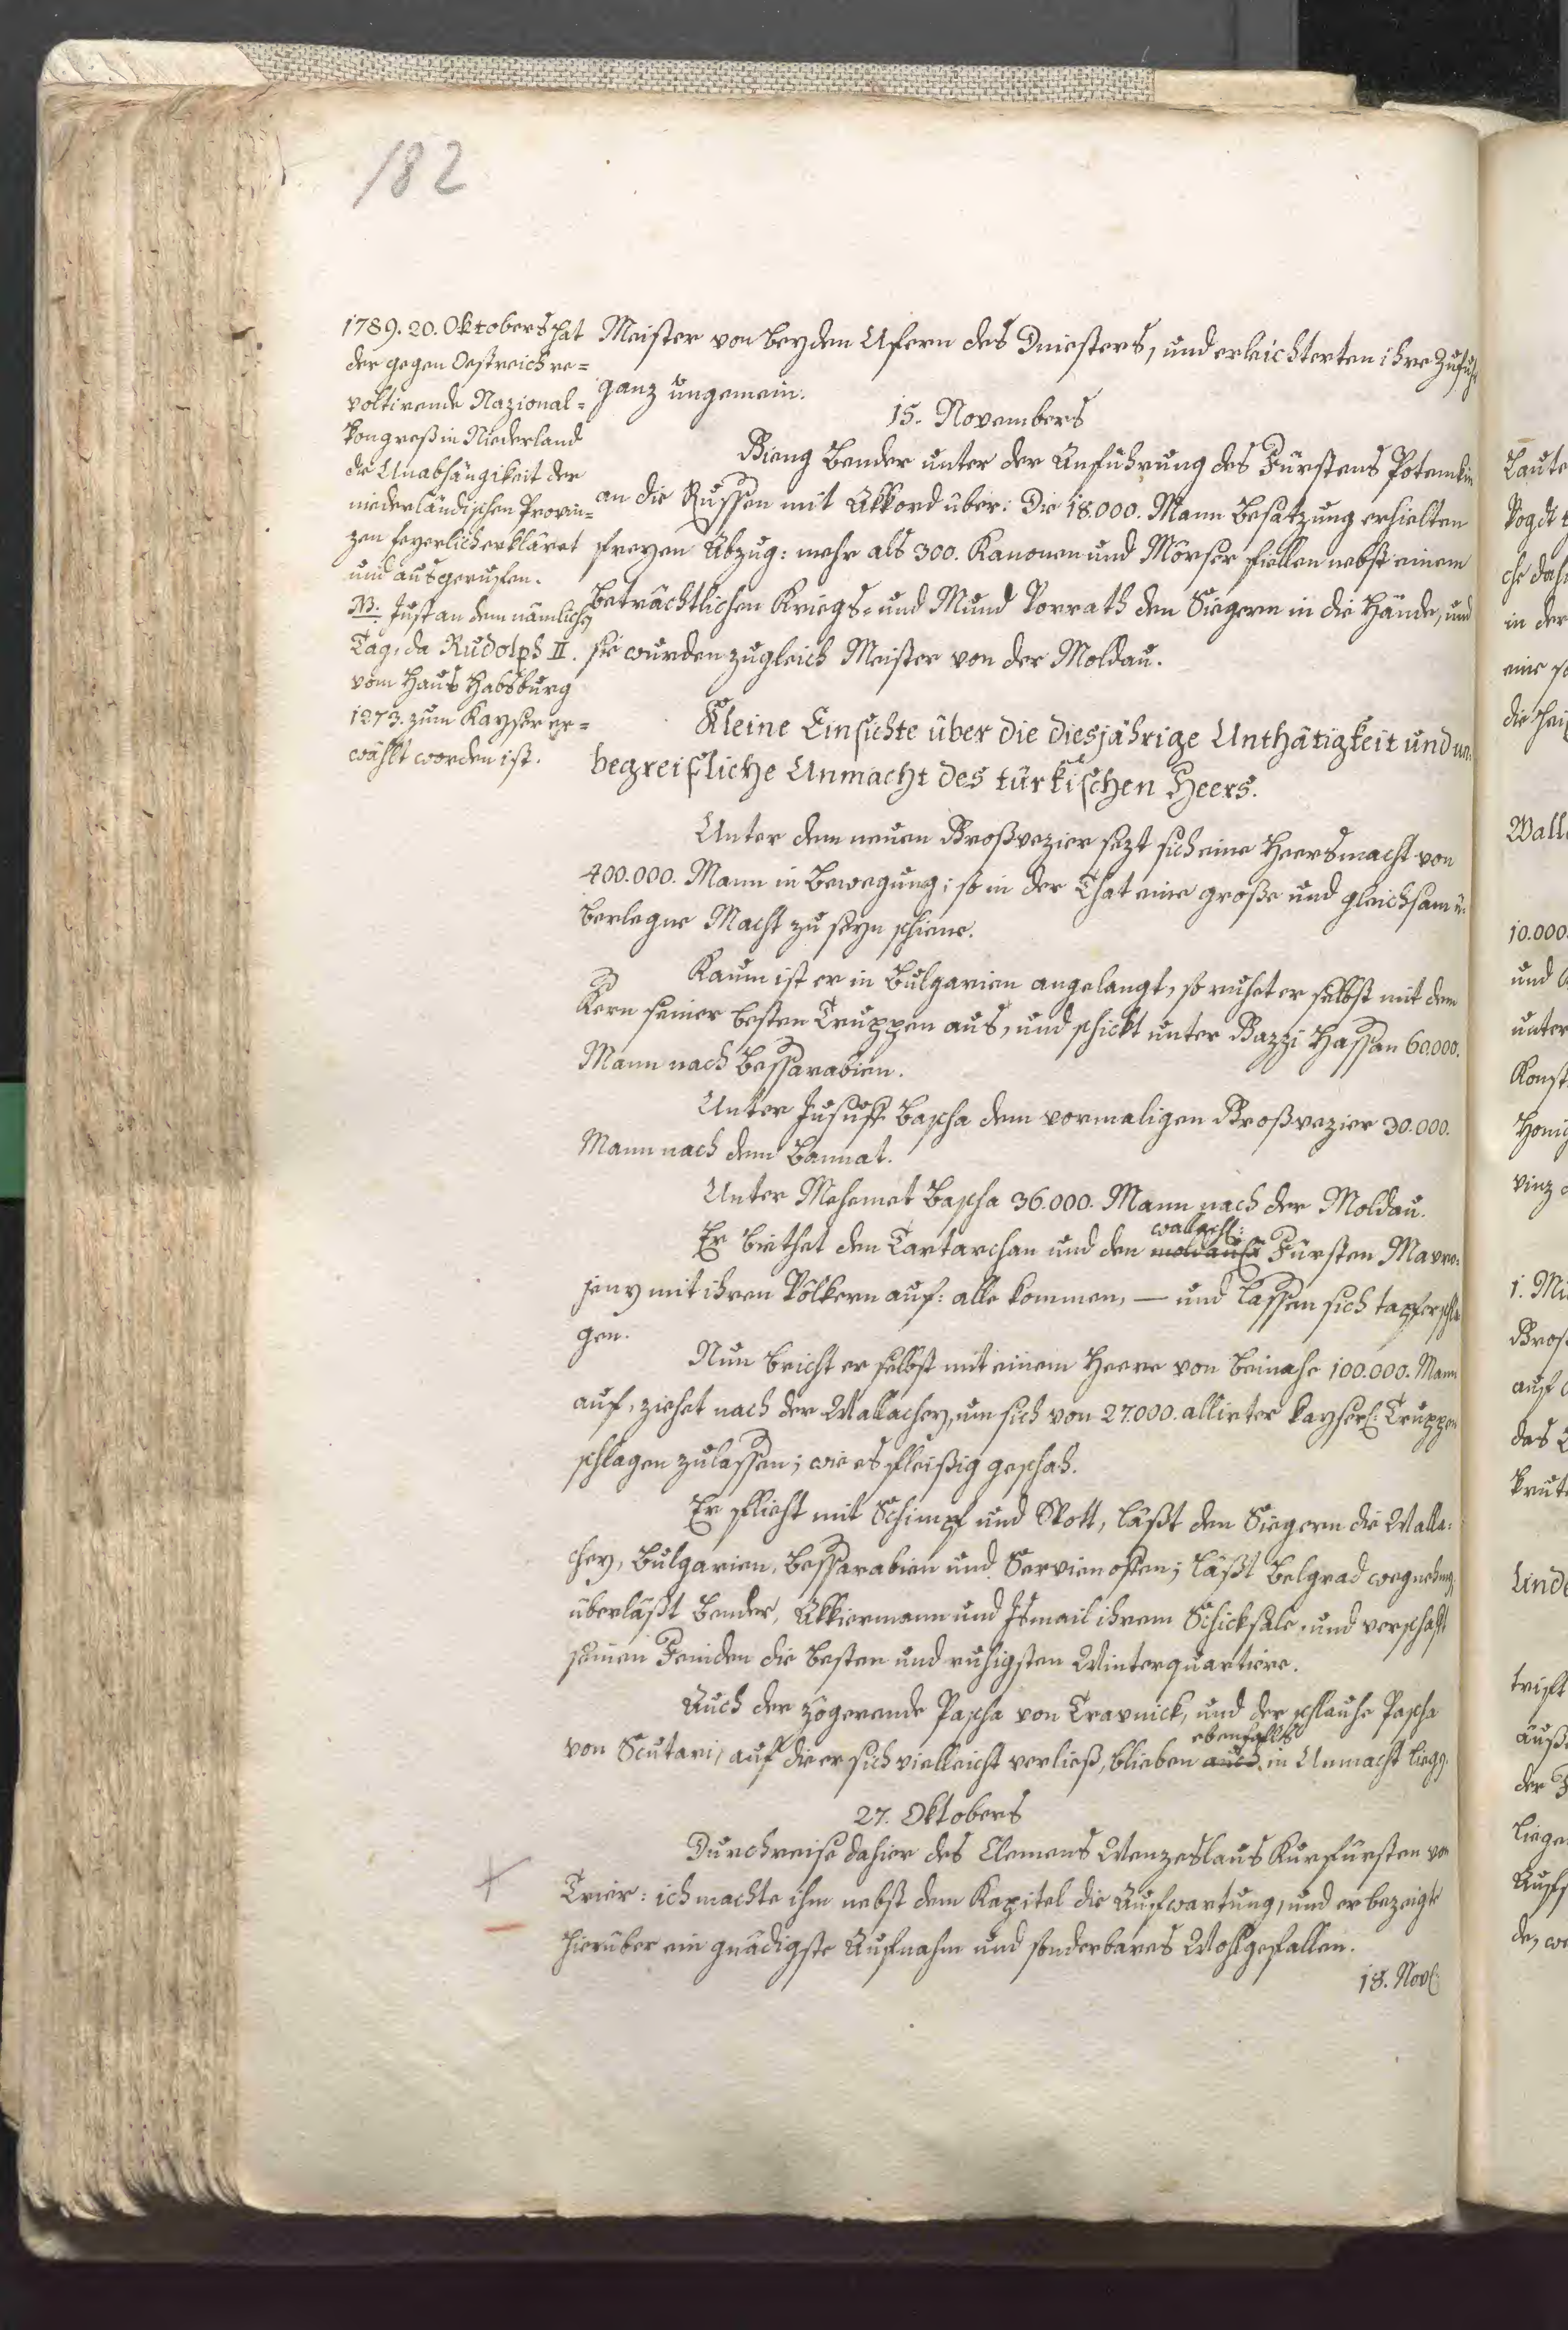 182
1789. 20. Oktobers hat
der gegen Oestreich re=
voltirende Nazional=
kongreß in Niederland
die Unabhängikeit der
niederländischen Provin=
zen feyerlich erkläret
und ausgerufen.
NB. Just an dem nämlichen
Tag, da Rudolph II.
vom Haus Habsburg
1273. zum Kayser er=
wählt worden ist.
Meister von beyden Ufern des Dniesters, und erleichterten ihre Zufuhr
ganz ungemein.
15. Novembers
Gieng Bender unter der Anführung des Fürstens Potemkin
an die Russen mit Akkord über: Die 18.000. Mann Besatzung erhielten
freyen Abzug: mehr als 300. Kanonen und Mörser fiellen nebst einem
beträchtlichen Kriegs= und Mund Vorrath den Siegern in die Hände, und
sie wurden zugleich Meister von der Moldau.
Kleine Einsichte über die diesjährige Unthätigkeit und un=
begreifliche Unmacht des türkischen Heers.
Unter dem neuen Großvezier sezt sich eine Heersmacht von
400.000. Mann in Bewegung; so in der That eine große und gleichsam ü=
berlegne Macht zu seyn schiene.
Kaum ist er in Bulgarien angelangt, so ruhet er selbst mit dem
Kern seiner besten Truppen aus, und schickt unter Gazzi Hassan 60.000.
Mann nach Bessarabien.
Unter Jusuff Bascha dem vormaligen Großvezier 30.000.
Mann nach dem Bannat.
Unter Mehemet Bascha 36.000. Mann nach der Moldau.
wallach:
Er biethet den Tartarchan und den moldauis: Fürsten Mavro=
jeny mit ihren Völkern auf: alle kommen, — und lassen sich tapfer schla
gen.
Nun bricht er selbst mit einem Heere von beinahe 100.000. Mann
auf, ziehet nach der Wallachey, um sich von 27.000. allirter kayserl: Truppen
schlagen zulassen; wie es fleißig geschah.
Er flieht mit Schimpf und Spott, läßt den Siegern die Walla=
chey, Bulgarien, Bessarabien und Servien offen; läßt Belgrad wegnehmen,
überläßt Bender, Akkiermann und Ismail ihrem Schicksale, und verschaft
seinen Feinden die besten und ruhigsten Winterquartiere.
Auch der zögerende Pascha von Travnick, und der schlauhe Pascha
ebenfalls
von Scutari, auf die er sich vielleicht verließ, blieben auch in Unmacht liegen.
27. Oktobers
Durchreise dahier des Clemens Wenzeslaus Kurfürsten von
Trier: ich machte ihm nebst dem Kapitel die Aufwartung, und er bezeigte
hierüber ein gnädigste Aufnahm und sonderbares Wohlgefallen.
18. Nov: